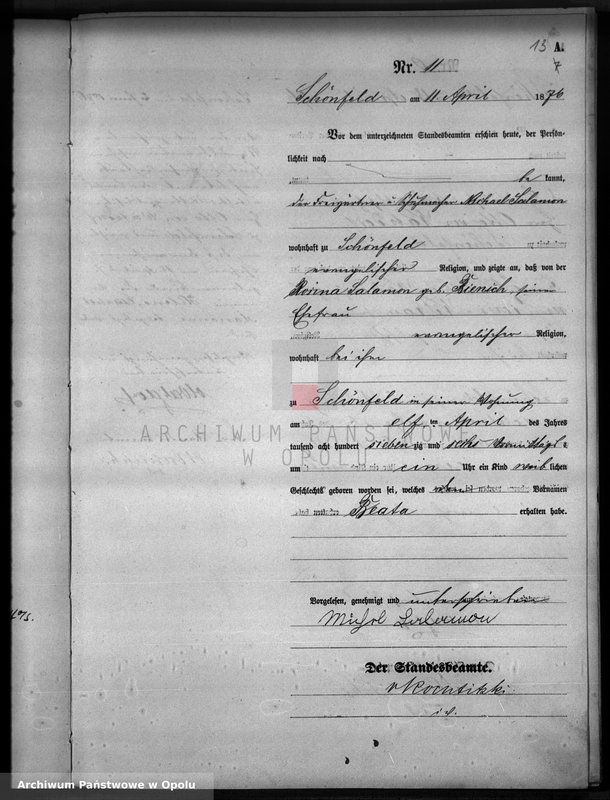 13 A.
7
Nr. 11
Schönfeld am 11 April 1876
Vor dem unterzeichneten Standesbeamten erschien heute, der Persön-
lichkeit nach
be kannt,
der Freigärtner u Schuhmacher Michael Salamon
wohnhaft zu Schönfeld
evangelischer Religion, und zeigte an, daß von der
Rosina Salamon geb. Bienich, seiner
Ehefrau
evangelischer Religion,
wohnhaft bei ihm
zu Schönfeld in seiner Wohnung
am elf ten April des Jahres
tausend acht hundert sieben zig und sechs Vormittags
um ein Uhr ein Kind weib lichen
Geschlechts geboren worden sei, welches Vornamen
Beata erhalten habe.
Vorgelesen, genehmigt und unterschrieben
Michel Salamon
Der Standesbeamte.
i. v.
ARCHIWUM PAŃSTWOWE
W OPOLU
Archiwum Państwowe w Opolu